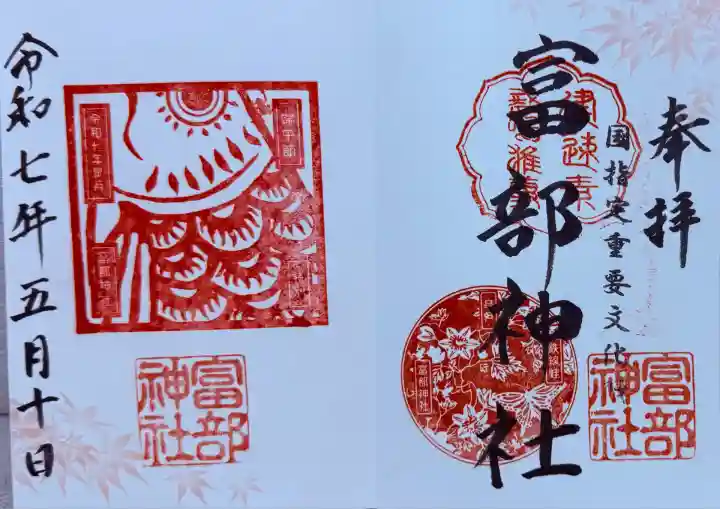 奉拝
国指定重要文化財
富部神社
富部神社
富部神社
端午節
令和七年皐月
富部神社
富部神社
令和七年五月十日